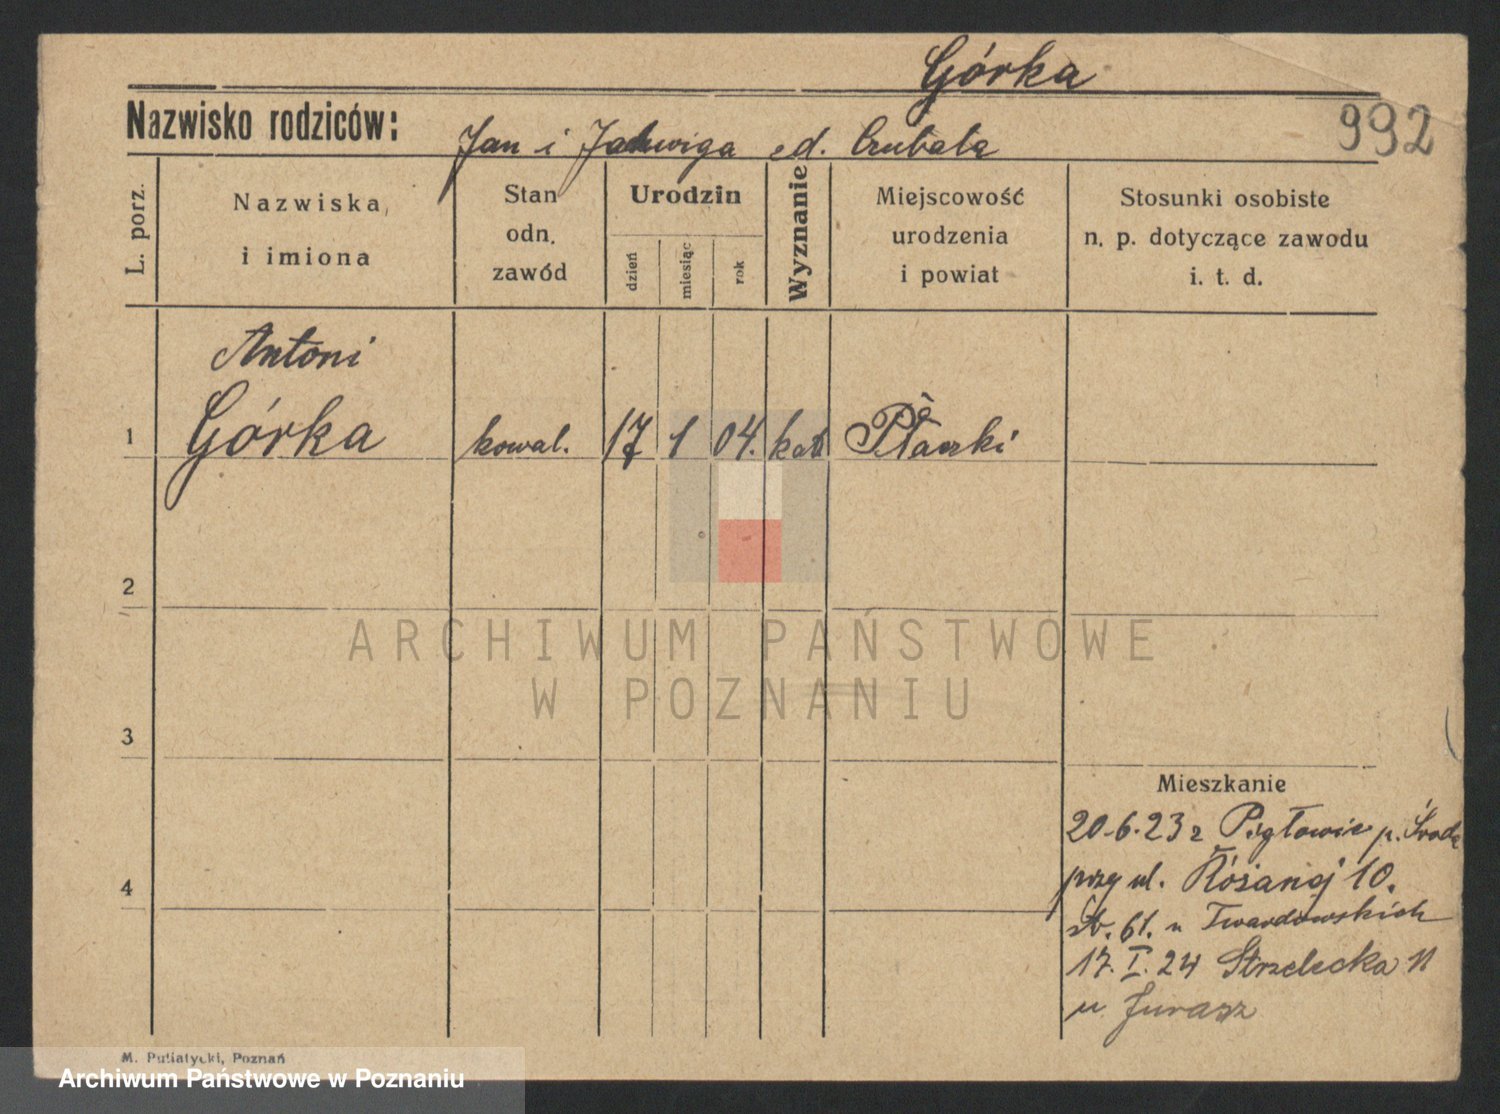 Górka
Nazwisko rodziców:
Jan i Jadwiga
992
L. porz.
Nazwiska
i imiona
Stan
odn.
zawód
Urodzin
dzień
miesiąc
rok
Wyznanie
Miejscowość
urodzenia
i powiat
Stosunki osobiste
n. p. dotyczące zawodu
i. t. d.
Antoni
1 Górka kowal. 17 1 04. kat Płaczki
2
ARCHIWUM PAŃSTWOWE
W POZNANIU
3
Mieszkanie
20-6-23 z Pigłowic p. Środa
4
przy ul. Różanej 10.
61. u Twardowskich
17. I. 24 Strzelecka 11
u Jurasz
M. Putiatycki, Poznań
Archiwum Państwowe w Poznaniu